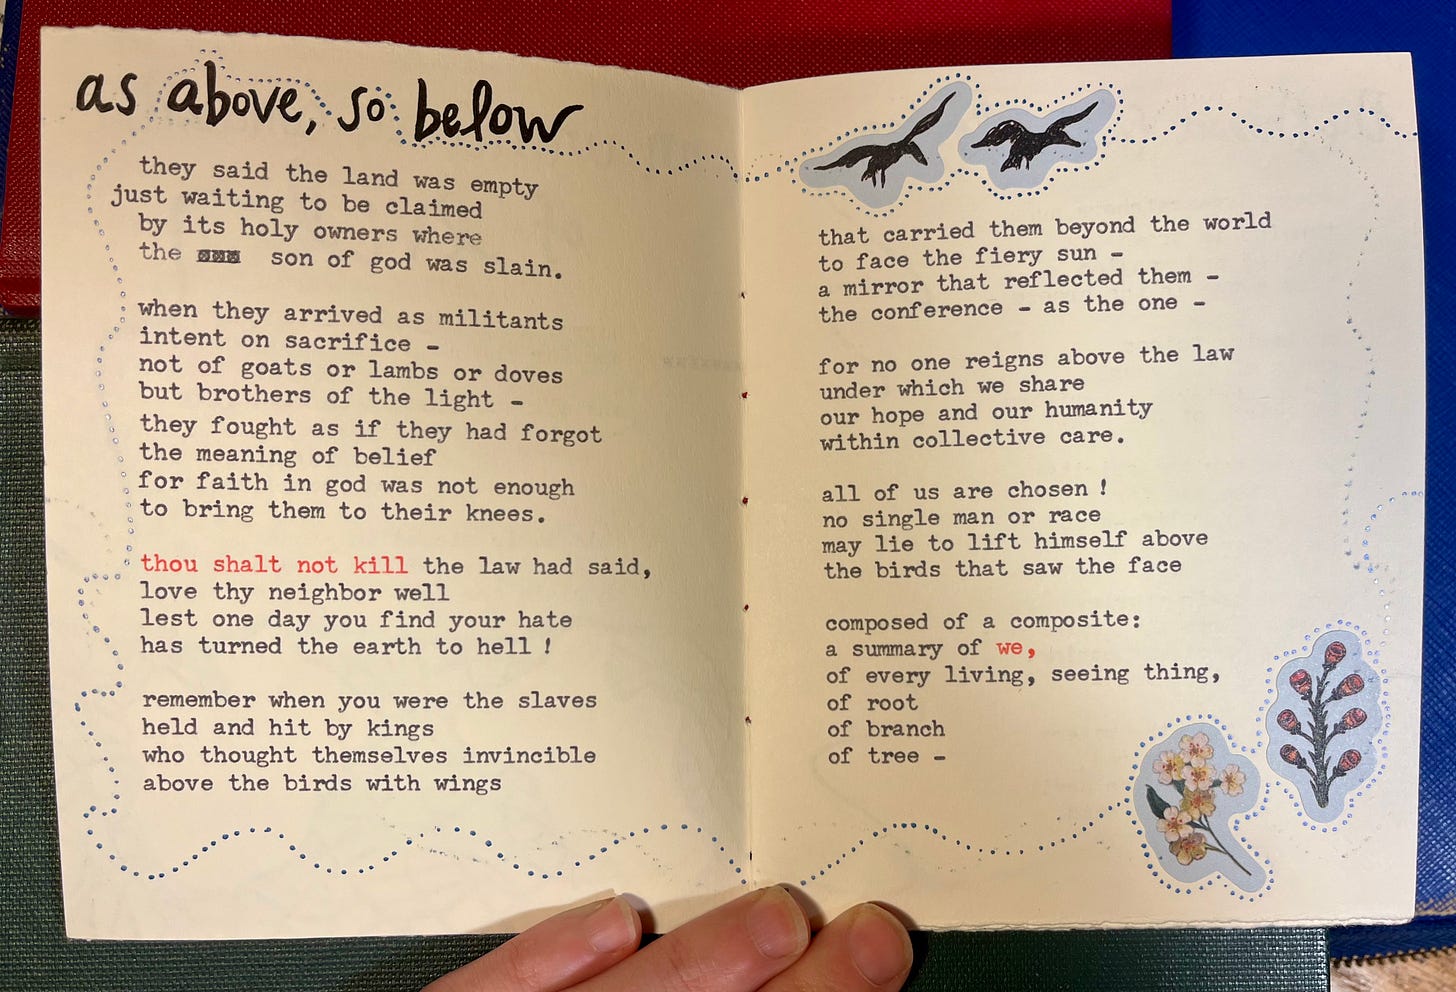 as above, so below
they said the land was empty
just waiting to be claimed
by its holy owners where
the son of god was slain.
when they arrived as militants
intent on sacrifice –
not of goats or lambs or doves
but brothers of the light –
they fought as if they had forgot
the meaning of belief
for faith in god was not enough
to bring them to their knees.
thou shalt not kill the law had said,
love thy neighbor well
lest one day you find your hate
has turned the earth to hell !
remember when you were the slaves
held and hit by kings
who thought themselves invincible
above the birds with wings
that carried them beyond the world
to face the fiery sun –
a mirror that reflected them –
the conference – as the one –
for no one reigns above the law
under which we share
our hope and our humanity
within collective care.
all of us are chosen !
no single man or race
may lie to lift himself above
the birds that saw the face
composed of a composite:
a summary of we,
of every living, seeing thing,
of root
of branch
of tree –